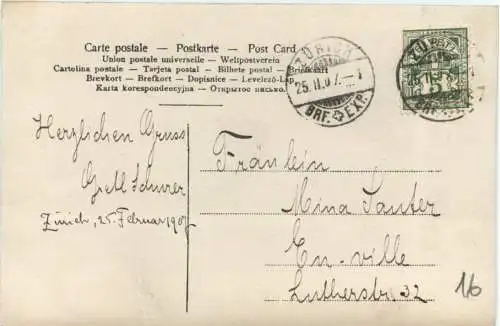 Carte postale – Postkarte – Post Card
Union postale universelle – Weltpostverein
Cartolina postale – Tarjeta postal – Bilhete postal – Brevkort
Brevkort – Brefkort – Dopisnice – Levelező-Lap
Karta korespondencyjna – Открытое письмо.
ZÜRICH
25.II.07.–1
BRF. EXP.
5
Herzlichen Gruss
Gretl
Zürich, 25. Februar 1907
Fräulein
Mina Sauter
En-ville
Lutherstr. 32
16